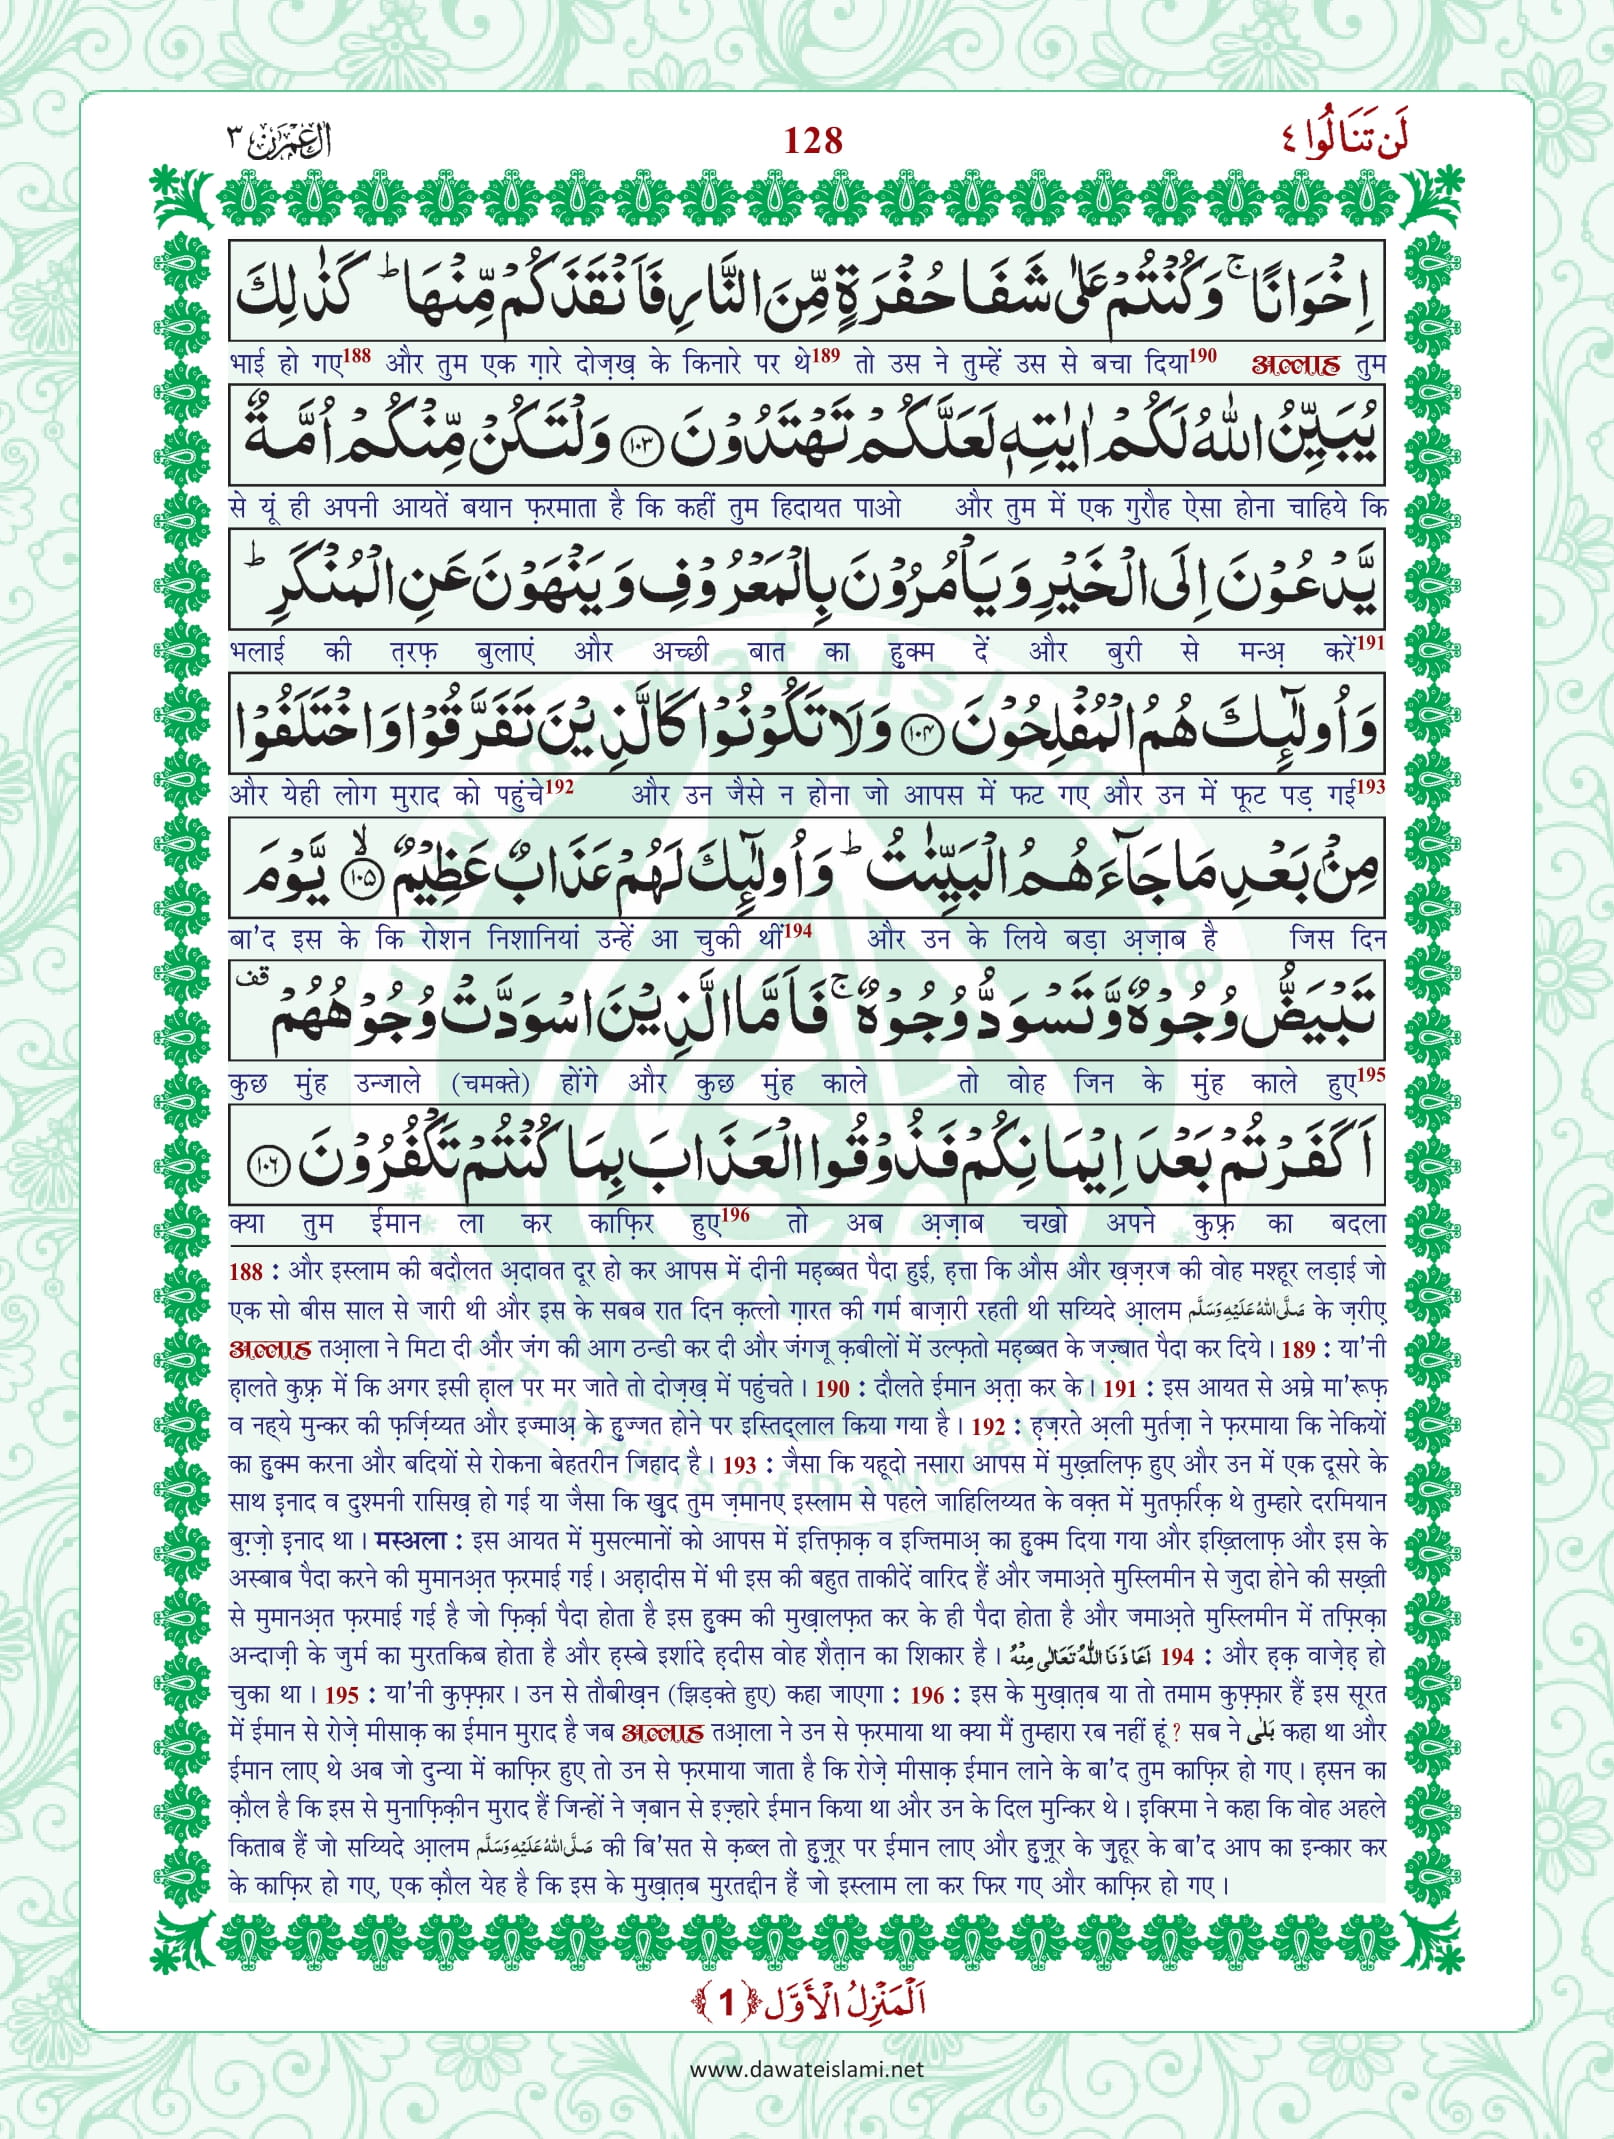 اٰلِ عِمْرٰن ٣
128
لَنْ تَنَالُوا ٤
اِخْوَانًا ۚ وَكُنْتُمْ عَلٰى شَفَا حُفْرَةٍ مِّنَ النَّارِ فَاَنْقَذَكُمْ مِّنْهَا ؕ كَذٰلِكَ
भाई हो गए188 और तुम एक ग़ारे दोज़ख़ के किनारे पर थे189 तो उस ने तुम्हें उस से बचा दिया190 अल्लाह तुम
يُبَيِّنُ اللّٰهُ لَكُمْ اٰيٰتِهٖ لَعَلَّكُمْ تَهْتَدُوْنَ ﴿١٠٣﴾ وَلْتَكُنْ مِّنْكُمْ اُمَّةٌ
से यूं ही अपनी आयतें बयान फ़रमाता है कि कहीं तुम हिदायत पाओ और तुम में एक गुरौह ऐसा होना चाहिये कि
يَّدْعُوْنَ اِلَى الْخَيْرِ وَيَاْمُرُوْنَ بِالْمَعْرُوْفِ وَيَنْهَوْنَ عَنِ الْمُنْكَرِ ؕ
भलाई की त़रफ़ बुलाएं और अच्छी बात का हु़क्म दें और बुरी से मन्अ़ करें191
وَاُولٰٓئِكَ هُمُ الْمُفْلِحُوْنَ ﴿١٠٤﴾ وَلَا تَكُوْنُوْا كَالَّذِيْنَ تَفَرَّقُوْا وَاخْتَلَفُوْا
और येही लोग मुराद को पहुंचे192 और उन जैसे न होना जो आपस में फट गए और उन में फूट पड़ गई193
مِنْۢ بَعْدِ مَا جَآءَهُمُ الْبَيِّنٰتُ ؕ وَاُولٰٓئِكَ لَهُمْ عَذَابٌ عَظِيْمٌ ﴿١٠٥﴾ ۙ يَّوْمَ
बा’द इस के कि रोशन निशानियां उन्हें आ चुकी थीं194 और उन के लिये बड़ा अ़ज़ाब है जिस दिन
تَبْيَضُّ وُجُوْهٌ وَّتَسْوَدُّ وُجُوْهٌ ۚ فَاَمَّا الَّذِيْنَ اسْوَدَّتْ وُجُوْهُهُمْ قف
कुछ मुंह उन्जाले (चमक्ते) होंगे और कुछ मुंह काले तो वोह जिन के मुंह काले हुए195
اَكَفَرْتُمْ بَعْدَ اِيْمَانِكُمْ فَذُوْقُوا الْعَذَابَ بِمَا كُنْتُمْ تَكْفُرُوْنَ ﴿١٠٦﴾
क्या तुम ईमान ला कर काफ़िर हुए196 तो अब अ़ज़ाब चखो अपने कुफ़्र का बदला
188 : और इस्लाम की बदौलत अ़दावत दूर हो कर आपस में दीनी मह़ब्बत पैदा हुई, ह़त्ता कि औस और ख़ज़रज की वोह मश्हूर लड़ाई जो
एक सो बीस साल से जारी थी और इस के सबब रात दिन क़त्लो ग़ारत की गर्म बाज़ारी रहती थी सय्यिदे आ़लम صَلَّى اللهُ عَلَيْهِ وَسَلَّم के ज़रीए
अल्लाह तआ़ला ने मिटा दी और जंग की आग ठन्डी कर दी और जंगजू क़बीलों में उल्फ़तो मह़ब्बत के जज़्बात पैदा कर दिये । 189 : या’नी
ह़ालते कुफ़्र में कि अगर इसी ह़ाल पर मर जाते तो दोज़ख़ में पहुंचते । 190 : दौलते ईमान अ़त़ा कर के । 191 : इस आयत से अम्रे मा’रूफ़
व नह्ये मुन्कर की फ़र्ज़िय्यत और इज्माअ़ के हु़ज्जत होने पर इस्तिद्लाल किया गया है । 192 : ह़ज़रते अ़ली मुर्तज़ा ने फ़रमाया कि नेकियों
का हु़क्म करना और बदियों से रोकना बेहतरीन जिहाद है । 193 : जैसा कि यहूदो नसारा आपस में मुख़्तलिफ़ हुए और उन में एक दूसरे के
साथ इ़नाद व दुश्मनी रासिख़ हो गई या जैसा कि खु़द तुम ज़मानए इस्लाम से पहले जाहिलिय्यत के वक़्त में मुतफ़र्रिक़ थे तुम्हारे दरमियान
बुग़्ज़ो इ़नाद था । मस्अला : इस आयत में मुसल्मानों को आपस में इत्तिफ़ाक़ व इज्तिमाअ़ का हु़क्म दिया गया और इख़्तिलाफ़ और इस के
अस्बाब पैदा करने की मुमानअ़त फ़रमाई गई । अह़ादीस में भी इस की बहुत ताकीदें वारिद हैं और जमाअ़ते मुस्लिमीन से जुदा होने की सख़्ती
से मुमानअ़त फ़रमाई गई है जो फ़िर्क़ा पैदा होता है इस हु़क्म की मुख़ालफ़त कर के ही पैदा होता है और जमाअ़ते मुस्लिमीन में तफ़्रिक़ा
अन्दाज़ी के जुर्म का मुरतकिब होता है और ह़स्बे इर्शादे ह़दीस वोह शैत़ान का शिकार है । اَعَاذَنَا اللّٰهُ تَعَالٰى مِنْهُ 194 : और ह़क़ वाज़ेह़ हो
चुका था । 195 : या’नी कुफ़्फ़ार । उन से तौबीख़न (झिड़क्ते हुए) कहा जाएगा : 196 : इस के मुख़ात़ब या तो तमाम कुफ़्फ़ार हैं इस सूरत
में ईमान से रोज़े मीसाक़ का ईमान मुराद है जब अल्लाह तआ़ला ने उन से फ़रमाया था क्या मैं तुम्हारा रब नहीं हूं ? सब ने بَلٰى कहा था और
ईमान लाए थे अब जो दुन्या में काफ़िर हुए तो उन से फ़रमाया जाता है कि रोज़े मीसाक़ ईमान लाने के बा’द तुम काफ़िर हो गए । ह़सन का
क़ौल है कि इस से मुनाफ़िक़ीन मुराद हैं जिन्हों ने ज़बान से इज़्हारे ईमान किया था और उन के दिल मुन्किर थे । इ़क्रिमा ने कहा कि वोह अहले
किताब हैं जो सय्यिदे आ़लम صَلَّى اللهُ عَلَيْهِ وَسَلَّم की बि’सत से क़ब्ल तो हु़ज़ूर पर ईमान लाए और हु़ज़ूर के जु़हूर के बा’द आप का इन्कार कर
के काफ़िर हो गए, एक क़ौल येह है कि इस के मुख़ात़ब मुरतद्दीन हैं जो इस्लाम ला कर फिर गए और काफ़िर हो गए ।
اَلْمَنْزِلُ الْاَوَّل ﴿1﴾
www.dawateislami.net